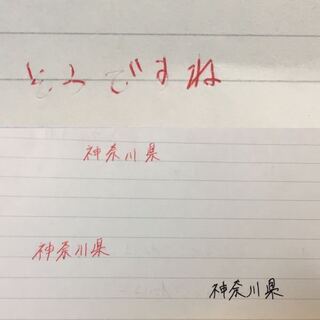 そうですね
神奈川県
神奈川県
神奈川県